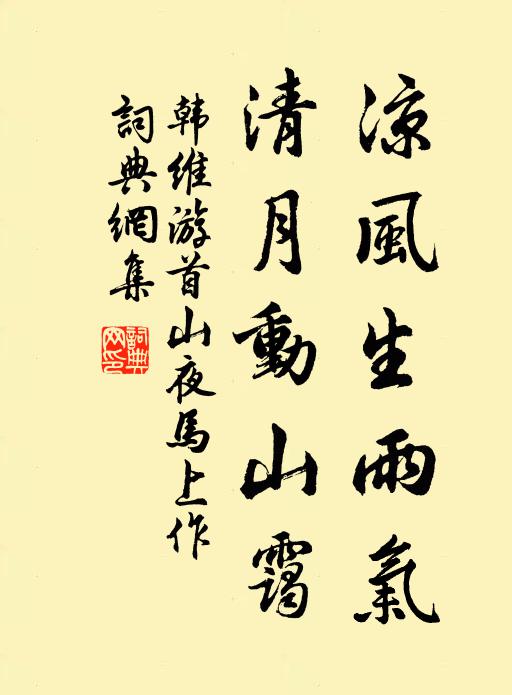 凉風生雨氣
清月動山靄
韩維游首山夜馬上作
詞典網集
詞典
网印